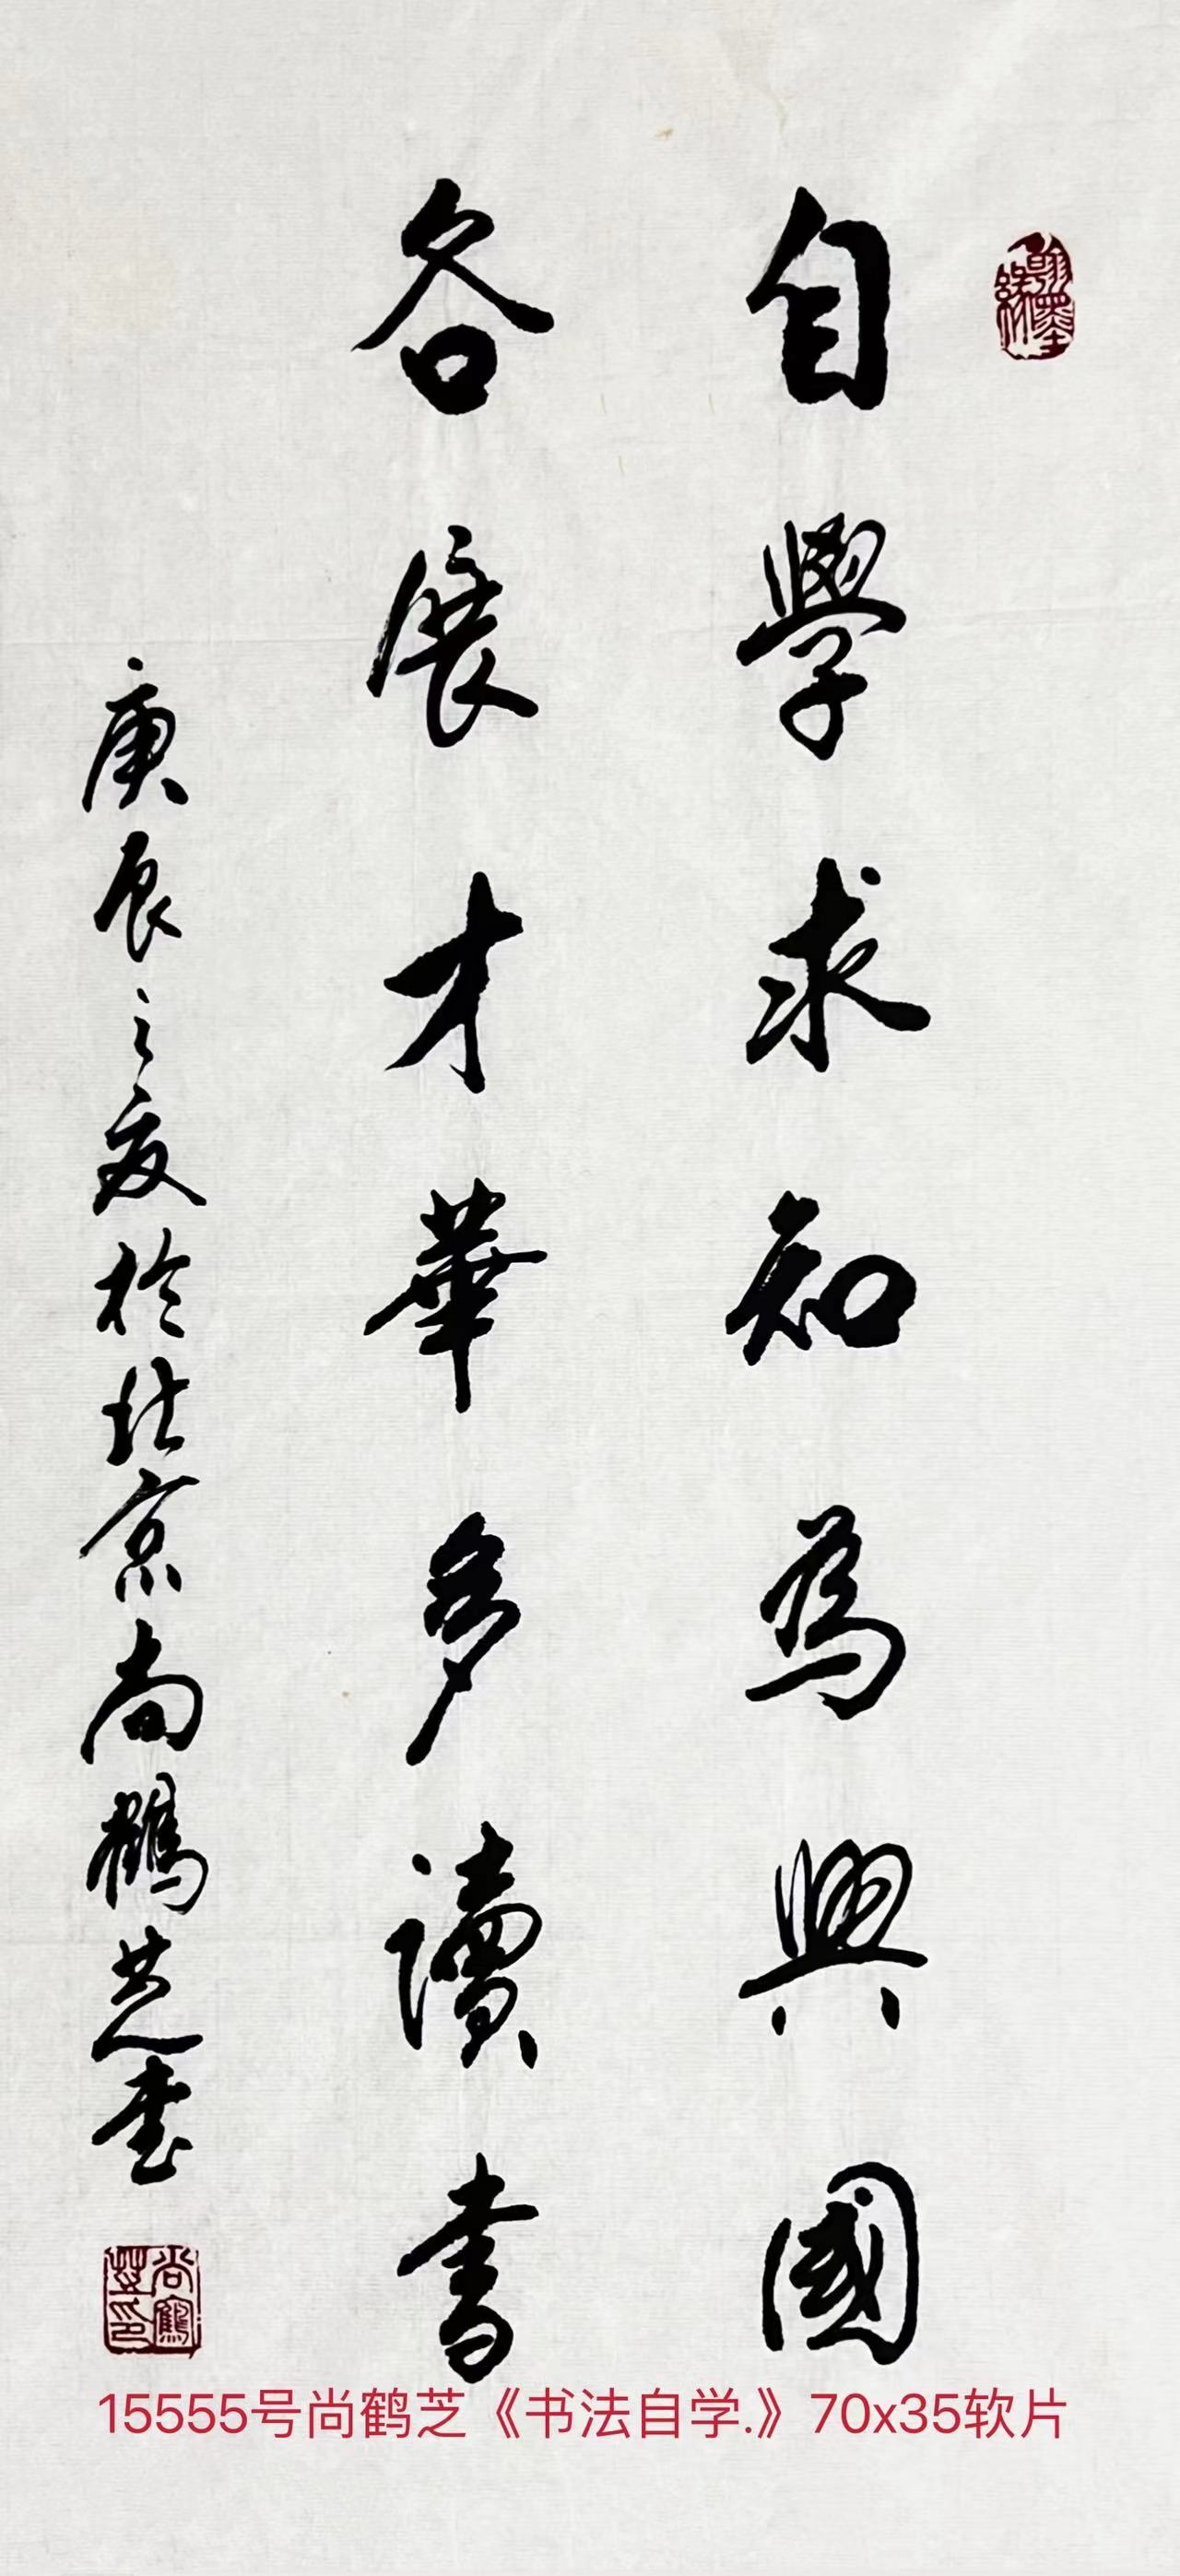 翰墨緣
自學求知爲興國
各展才華多讀書
庚辰之夏於北京尚鶴芝書
尚鶴芝印
15555号尚鹤芝《书法自学.》70x35软片